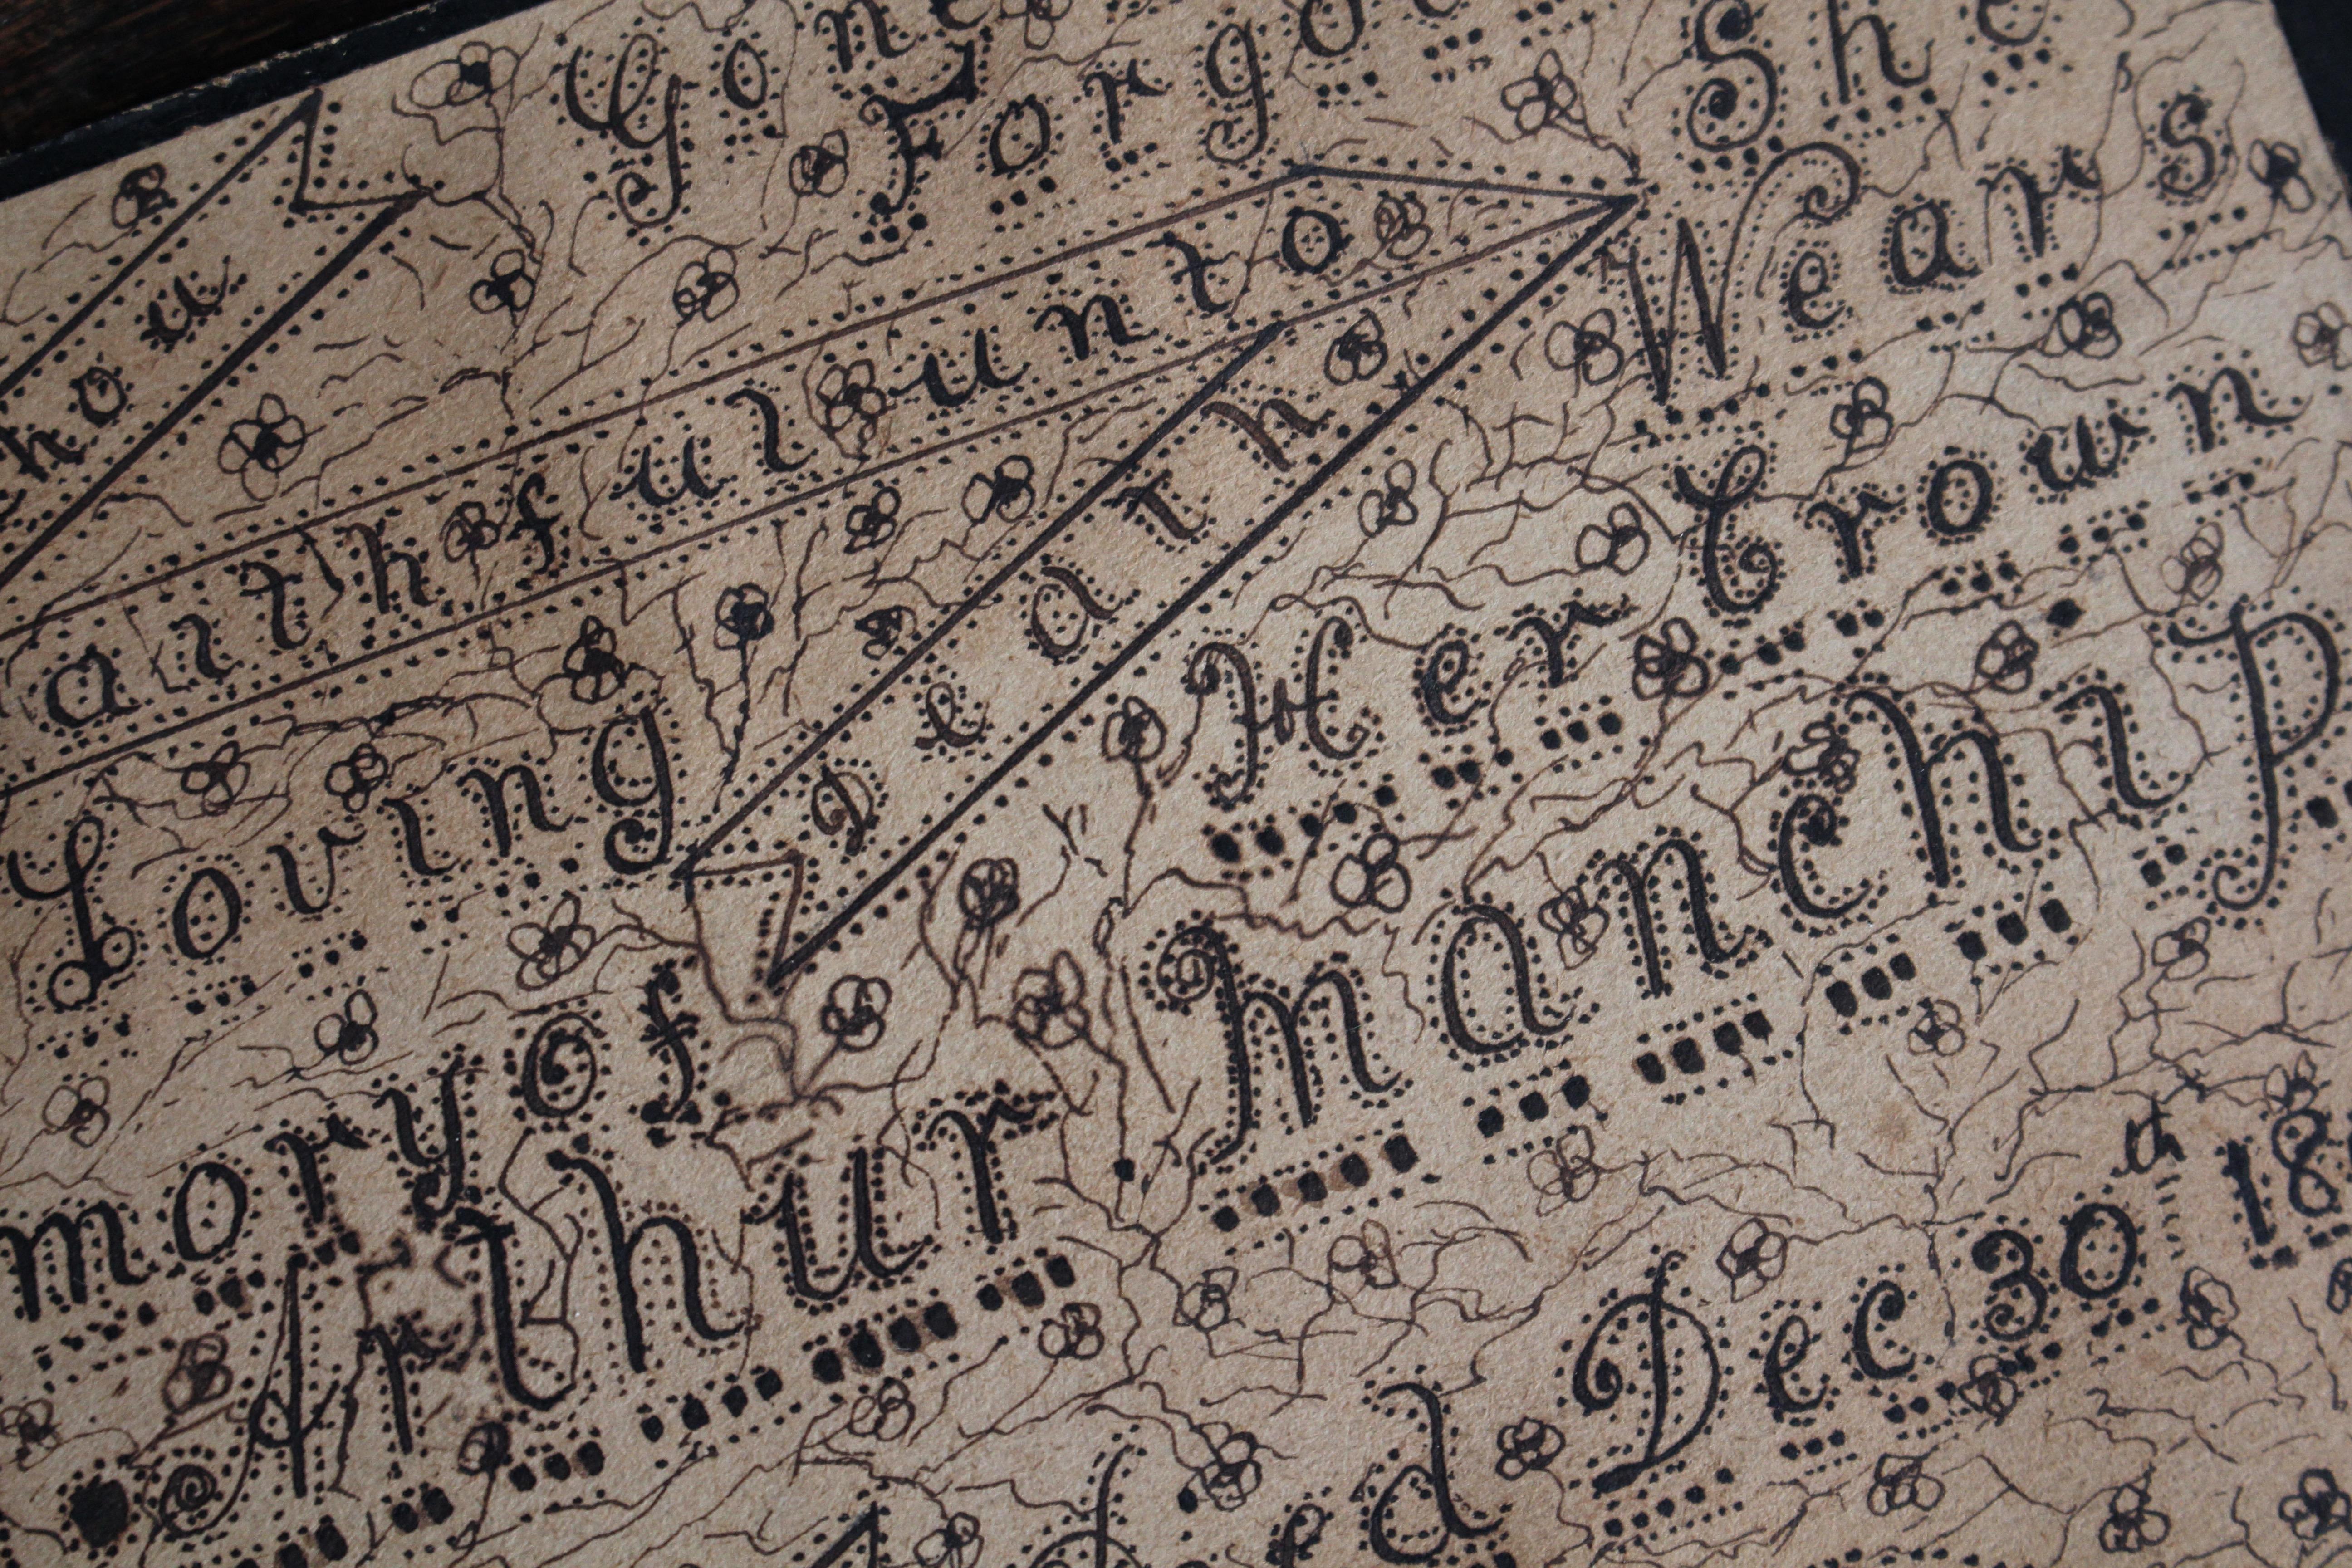 Gone
Forgo
She
Wears
hou
aithful unto
Death
Her Crown
Loving
mory of
Arthur Manchip
d Dec 30th 18